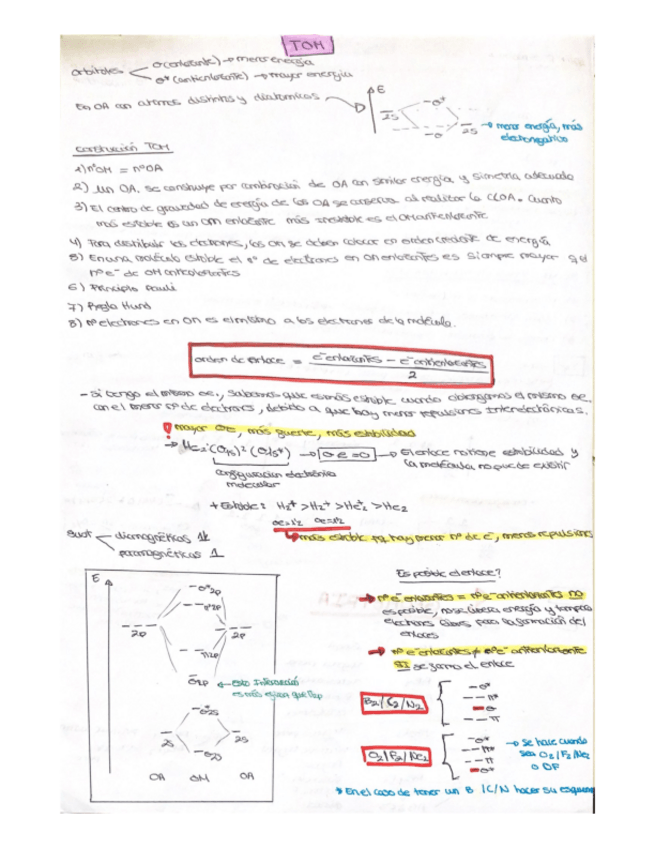 TOM
orbitales
σ (enlazante) → menor energía
σ* (antienlazante) → mayor energía
En OA con átomos distintos y diatómicos
E
σ*
2S
2S
σ
→ menor energía, más
electronegativo
Construcción TOM
1) nºOM = nºOA
2) Un OA, se construye por combinación de OA con similar energía y simetría adecuada
3) El centro de gravedad de energía de los OA se conserva al realizar la CLOA. Cuanto
más estable es un OM enlazante más inestable es el OM antienlazante
4) Para distribuir los electrones, los OM se deben colocar en orden creciente de energía
5) En una molécula estable el nº de electrones en OM enlazantes es siempre mayor q el
nº e⁻ de OM antienlazantes
6) Principio Pauli
7) Regla Hund
8) nº electrones en OM es el mismo a los electrones de la molécula.
orden de enlace = e⁻enlazantes − e⁻antienlazantes
2
- Si tengo el mismo oe., sabemos que es más estable, cuando obtengamos el mismo oe.
con el menor nº de electrones, debido a que hay menor repulsiones interelectrónicas.
! mayor OE, más fuerte, más estabilidad
→ He₂: (σ1s)² (σ1s*) → oe=0 → El enlace no tiene estabilidad y
la molécula no puede existir
configuración electrónica
molecular
+ Estable: H₂⁺ > He₂
oe=1/2 oe=1/2
más estable pq hay menor nº de e⁻, menos repulsiones
diamagnéticas 1↓
paramagnéticas 1
E
σ*2p
π*2p
2p
2p
π2p
σ2p
← esta interacción
es más que π2p
σ*2s
2s
2s
σ2s
OA OM OA
Es posible el enlace?
→ nº e⁻ enlazantes = nº e⁻ antienlazantes NO
es posible, no se libera energía y tampoco
electrones libres para la formación del
enlace
→ nº e⁻ enlazantes ≠ nº e⁻ antienlazante
SI se forma el enlace
B₂/C₂/N₂
σ*
π*
σ
π
O₂/F₂/Ne₂
σ*
π*
π
→ se hace cuando
sea O₂/F₂/Ne₂
o OF
→ En el caso de tener un B /C/N hacer su esquema